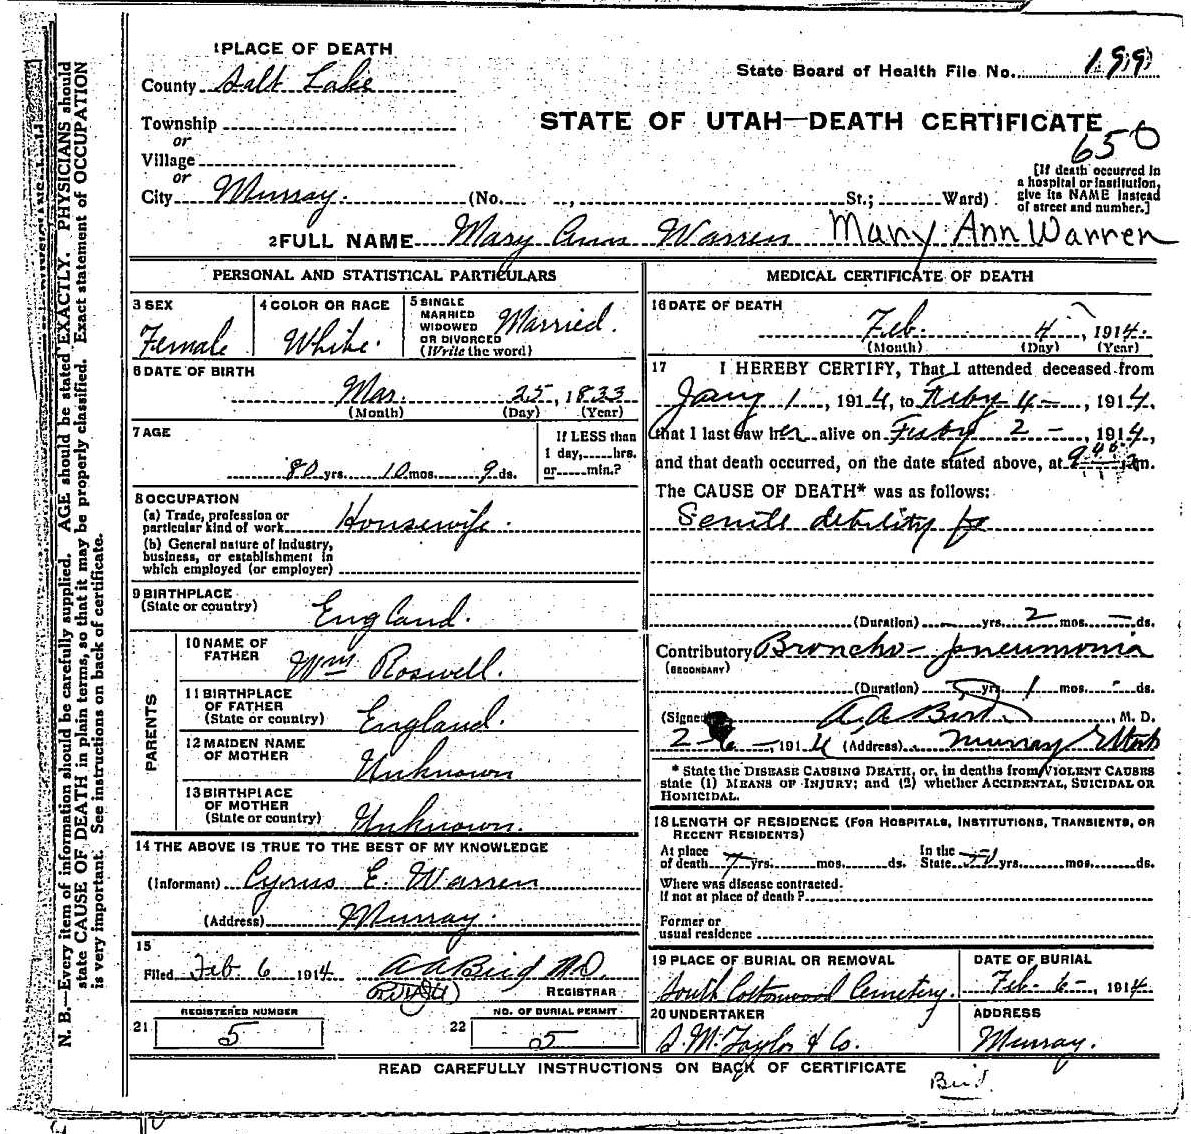 1 PLACE OF DEATH
County Salt Lake
State Board of Health File No. 199
Township
or
Village
or
City Murray. (No. , St.; Ward)
STATE OF UTAH—DEATH CERTIFICATE
650
[If death occurred in
a hospital or institution,
give its NAME instead
of street and number.]
2 FULL NAME Mary Ann Warren Mary Ann Warren
PERSONAL AND STATISTICAL PARTICULARS
3 SEX
Female
4 COLOR OR RACE
White.
5 SINGLE
MARRIED
WIDOWED
OR DIVORCED
(Write the word)
Married.
6 DATE OF BIRTH
Mar. 25, 1833
(Month) (Day) (Year)
7 AGE
80 yrs. 10 mos. 9 ds.
If LESS than
1 day, hrs.
or min.?
8 OCCUPATION
(a) Trade, profession or
particular kind of work Housewife.
(b) General nature of industry,
business, or establishment in
which employed (or employer)
9 BIRTHPLACE
(State or country) England.
PARENTS
10 NAME OF
FATHER Wm Roswell.
11 BIRTHPLACE
OF FATHER
(State or country) England.
12 MAIDEN NAME
OF MOTHER Unknown
13 BIRTHPLACE
OF MOTHER
(State or country) Unknown.
14 THE ABOVE IS TRUE TO THE BEST OF MY KNOWLEDGE
(Informant) Cyrus E. Warren
(Address) Murray.
15
Filed Feb. 6 1914 A A Bird M.D.
REGISTRAR
21 REGISTERED NUMBER
5
22 NO. OF BURIAL PERMIT
5
MEDICAL CERTIFICATE OF DEATH
16 DATE OF DEATH
Feb. 4, 1914.
(Month) (Day) (Year)
17 I HEREBY CERTIFY, That I attended deceased from
Jany 1, 1914, to Feby 4-, 1914,
that I last saw her alive on Feby 2-, 1914,
and that death occurred, on the date stated above, at 9 40 m.
The CAUSE OF DEATH* was as follows:
Senile debility
(Duration) yrs. 2 mos. - ds.
Contributory Broncho-pneumonia
(SECONDARY)
(Duration) yrs. 1 mos. - ds.
(Signed) A. A. Bird, M. D.
2-6-1914 (Address) Murray Utah
* State the DISEASE CAUSING DEATH, or, in deaths from VIOLENT CAUSES
state (1) MEANS OF INJURY; and (2) whether ACCIDENTAL, SUICIDAL OR
HOMICIDAL.
18 LENGTH OF RESIDENCE (FOR HOSPITALS, INSTITUTIONS, TRANSIENTS, OR
RECENT RESIDENTS)
At place
of death 7 yrs. mos. ds.
In the
State 50 yrs. mos. ds.
Where was disease contracted.
If not at place of death?
Former or
usual residence
19 PLACE OF BURIAL OR REMOVAL
South Cottonwood Cemetery.
DATE OF BURIAL
Feb. 6-, 1914.
20 UNDERTAKER
S. M. Taylor & Co.
ADDRESS
Murray.
READ CAREFULLY INSTRUCTIONS ON BACK OF CERTIFICATE
Bird.
N. B.—Every item of information should be carefully supplied. AGE should be stated EXACTLY. PHYSICIANS should
state CAUSE OF DEATH in plain terms, so that it may be properly classified. Exact statement of OCCUPATION
is very important. See instructions on back of certificate.